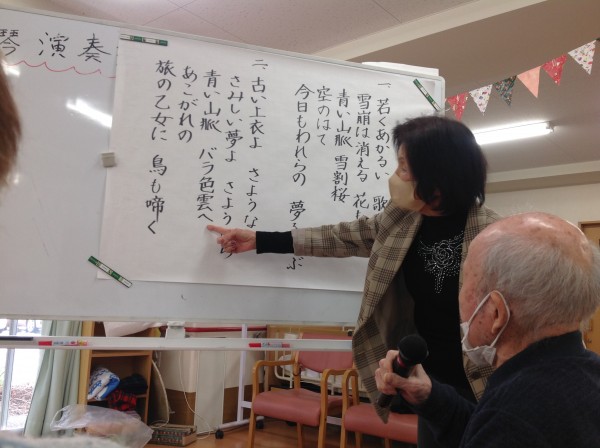 琴演奏
一、若くあかるい 歌
雪崩は消える 花
青い山脈 雪割桜
空のはて
今日もわれらの 夢 ぶ
二、古い上衣よ さような
さみしい夢よ さよう
青い山脈 バラ色雲へ
あこがれの
旅の乙女に 鳥も啼く